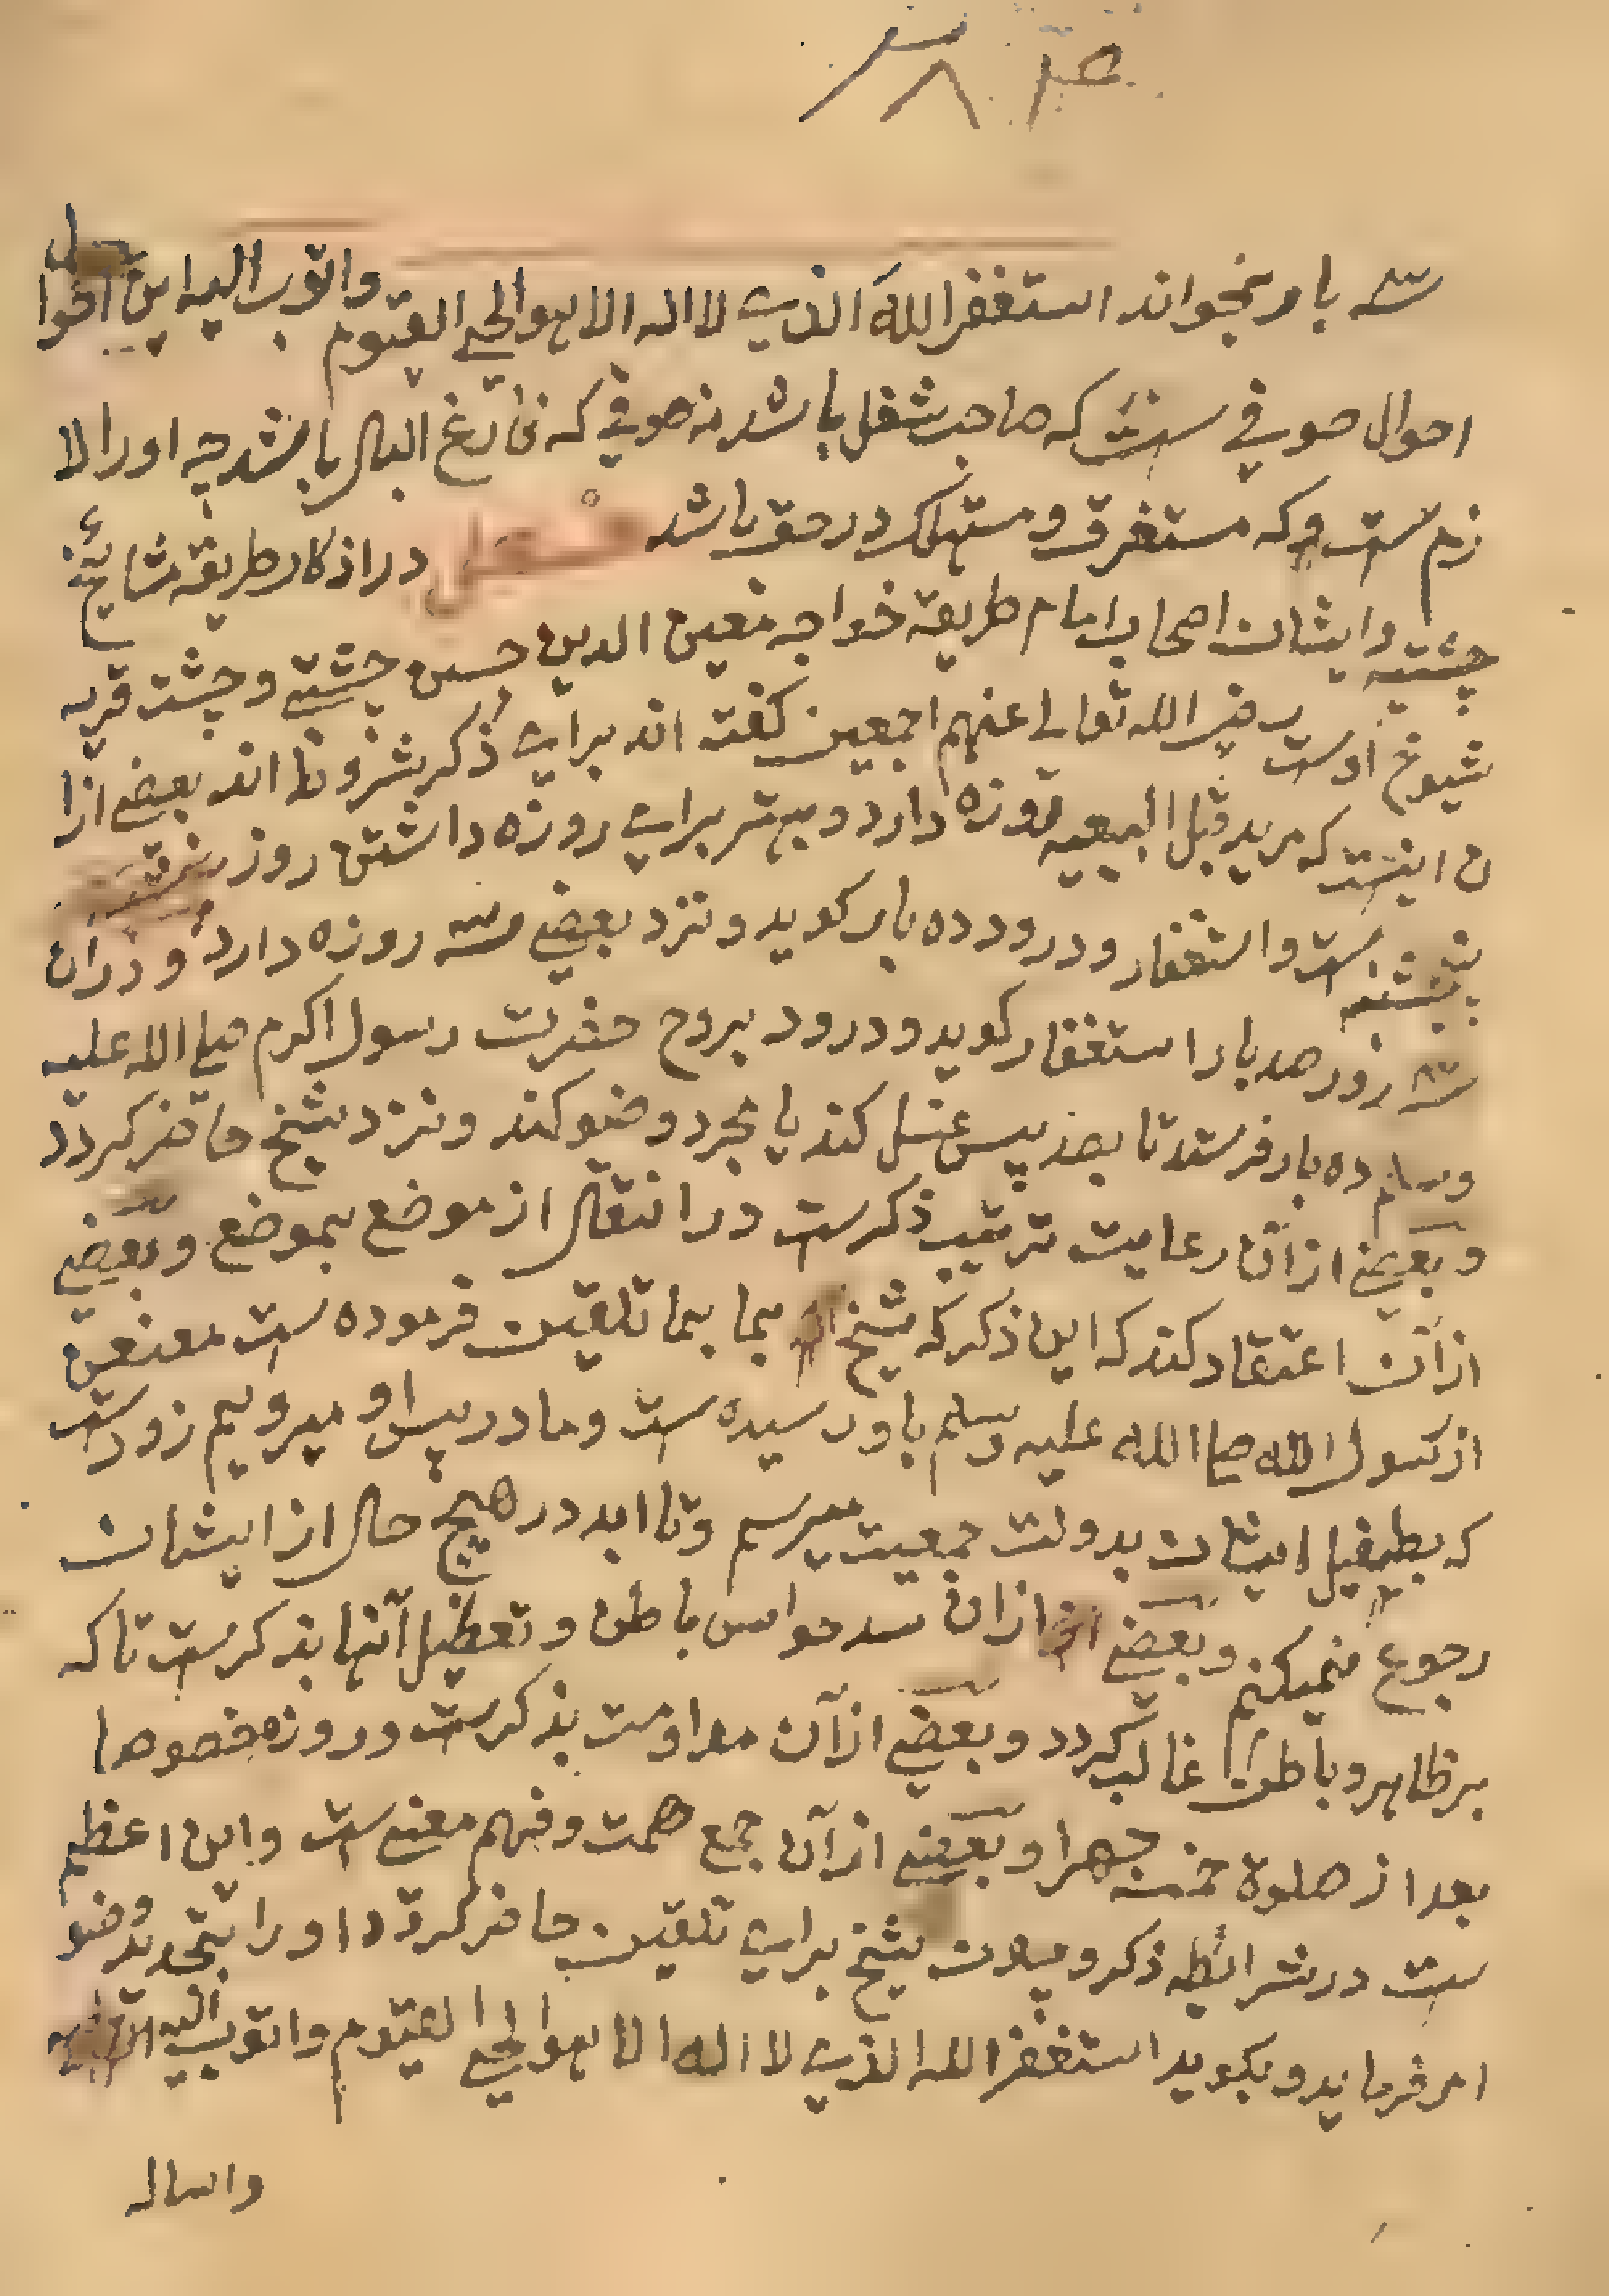 سه بار بخواند استغفر الله الذی لا اله الا هو الحی القیوم واتوب الیه این
احوال صوفی ست که صاحب شغل باشد نه صوفی که فارغ البال باشد چه اورا لا
زم ست و که مستغرق و مستهلک در حق باشد فصل در اذکار طریقه مشایخ
چشتیه و ایشان اصحاب امام طریقه خواجه معین الدین حسن چشتی و چشت قریه
شیوخ اوست رضی الله تعالی عنهم اجمعین گفته اند برای ذکر شروط اند بعضی ازا
ن اینست که مرید قبل البیعه روزه دارد و بهتر برای روزه داشتن روز
پنجشنبه ست و استغفار و درود ده بار گوید و نزد بعضی سه روزه دارد و دران
سه روز صد بار استغفار گوید و درود بروح حضرت رسول اکرم صلی الله علیه
وسلم ده بار فرستد تا بعد پس غسل کند یا مجرد وضو کند و نزد شیخ حاضر گردد
و بعضی ازان رعایت ترتیب ذکرست در انتقال از موضع بموضع و بعضی
ازان اعتقاد کند که این ذکر که شیخ بما تلقین فرموده ست معنعن
از رسول الله صلی الله علیه وسلم باو رسیده ست و ما در پس او میرویم زودست
که بطفیل ایشان بدولت جمعیت میرسم و تا ابد در هیچ حال از ایشان
رجوع نمیکنم و بعضی ازان سد حواس باطن و تعطیل آنها بذکرست تا که
بر ظاهر و باطن غالب گردد و بعضی ازآن مداومت بذکرست و روزه خصوصا
بعد از صلوة خمسه جهرا و بعضی ازآن جمع همت و فهم معنی ست و این اعظم
ست در شرائط ذکر و چون شیخ برای تلقین حاضر گردد اورا بتجدید وضو
امر فرماید و بگوید استغفر الله الذی لا اله الا هو الحی القیوم واتوب الیه
واساله